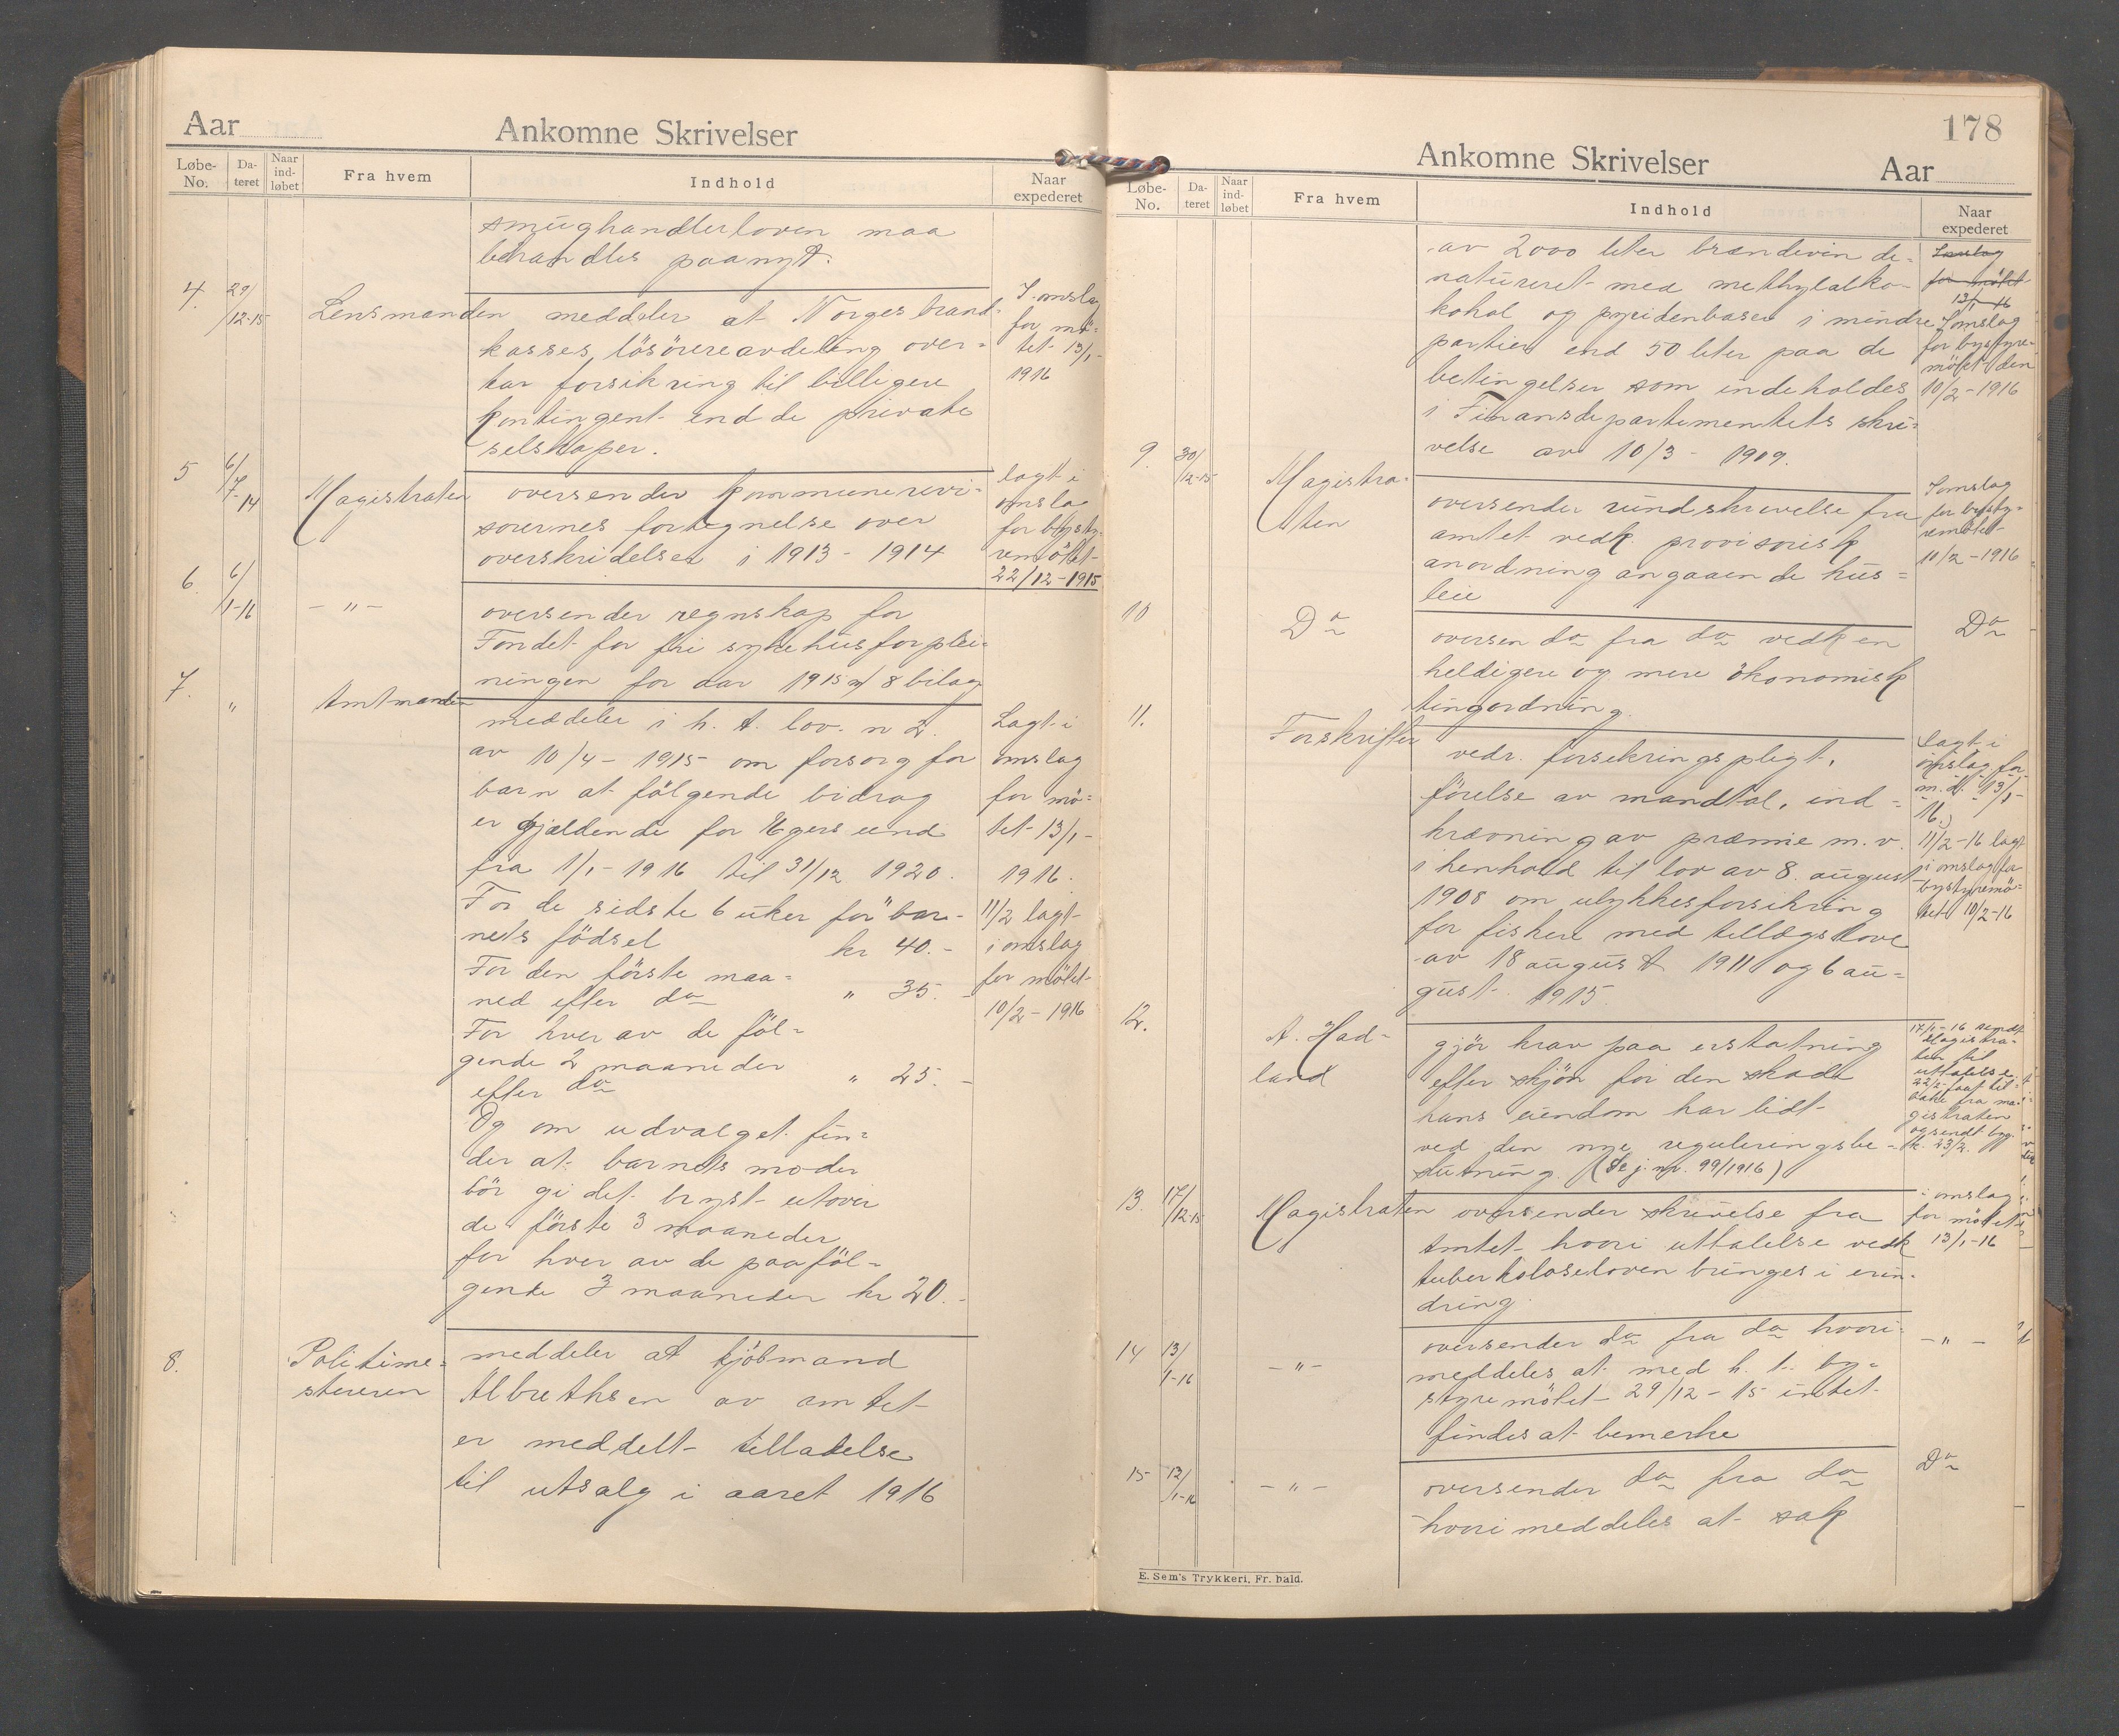 Aar
Ankomne Skrivelser
Løbe-No.
Da-teret
Naar ind-løbet
Fra hvem
Indhold
Naar expederet
smughandlerloven maa
behandles paanyt.
4.
29/12-15
Lensmanden meddeler at Norges brand-
kasses lösöreavdeling over-
tar forsikring til billigere
kontingent end de private
selskaper.
I omslag
for mö-
tet 13/1-
1916
5
6/7-14
Magistraten oversender kommunerevi-
sorernes fortegnelse over
overskridelser i 1913-1914
lagt i
omslag
for bysty-
remötet
22/12-1915
6.
6/1-16
- " -
oversender regnskap for
Fondet for fri sykehusforplei-
ningen for aar 1915 m/ 8 bilag
7.
"
Amtmanden
meddeler i h. t. lov. n 2.
av 10/4-1915 om forsorg for
barn at fölgende bidrag
er gjældende for Egersund
fra 1/1-1916 til 31/12 1920.
For de sidste 6 uker før bar-
nets födsel kr 40.-
For den förste maa-
ned efter do " 35.-
For hver av de föl-
gende 2 maaneder
efter do " 25.-
Og om udvalget fin-
der at barnets moder
bör gi det bryst utover
de förste 3 maaneder
for hver av de paaföl-
gende 3 maaneder kr 20.-
Lagt i
omslag
for mö-
tet 13/1-
1916.
11/2 lagt
i omslag
for mötet
10/2-1916
8.
Politime-
steren
meddeler at kjöbmand
Albrethsen av amtet
er meddelt tilladelse
til utsalg i aaret 1916
178
Ankomne Skrivelser
Aar
Løbe-No.
Da-teret
Naar ind-løbet
Fra hvem
Indhold
Naar expederet
av 2000 liter brændevin de-
natureret med methylalko-
kohol og pyridenbaser i mindre
partier end 50 liter paa de
betingelser som indeholdes
i Finansdepartementets skri-
velse av 10/3-1909.
I omslag
for mötet
13/1-16
I omslag
for bystyre-
mötet den
10/2-1916
9.
30/12-15
Magistra-
ten
oversender rundskrivelse fra
amtet vedk. provisorisk
anordning angaaende hus-
leie
I omslag
for bysty-
remötet
10/2-1916
10
Do
oversen do fra do vedk en
heldigere og mere ökonomisk
tingordning.
Do
11.
Forskrifter
vedr. forsikringspligt,
förelse av mandtal, ind-
krævning av præmie m. v.
i henhold til lov av 8. august
1908 om ulykkesforsikring
for fiskere med tillægslove
av 18 august 1911 og 6 au-
gust 1915.
lagt i
omslag for
m. d. 13/1-
16.
11/2-16 lagt
i omslag for
bystyremö-
tet 10/2-16
12.
A. Had-
land
gjör krav paa erstatning
efter skjön for den skade
hans eiendom har lidt
ved den nye reguleringsbe-
slutning. (Se j. nr. 99/1916)
17/1-16 sendt
Magistra-
ten til
uttalelse
22/2 faat til-
bake fra ma-
gistraten
og sendt byg.
k. 23/2.
13.
17/12-15
Magistraten oversender skrivelse fra
Amtet hvori uttalelse vedk
tuberkuloseloven bringes i erin-
dring.
i omslag
for mötet
13/1-16
14
13/1-16
- " -
oversender do fra do hvori
meddeles at med h. t. by-
styremötet 29/12-15 intet
findes at bemerke
- " -
15
12/1-16
- " -
oversender do fra do
hvori meddeles at sak
Do
E. Sem's Trykkeri, Fr.hald.